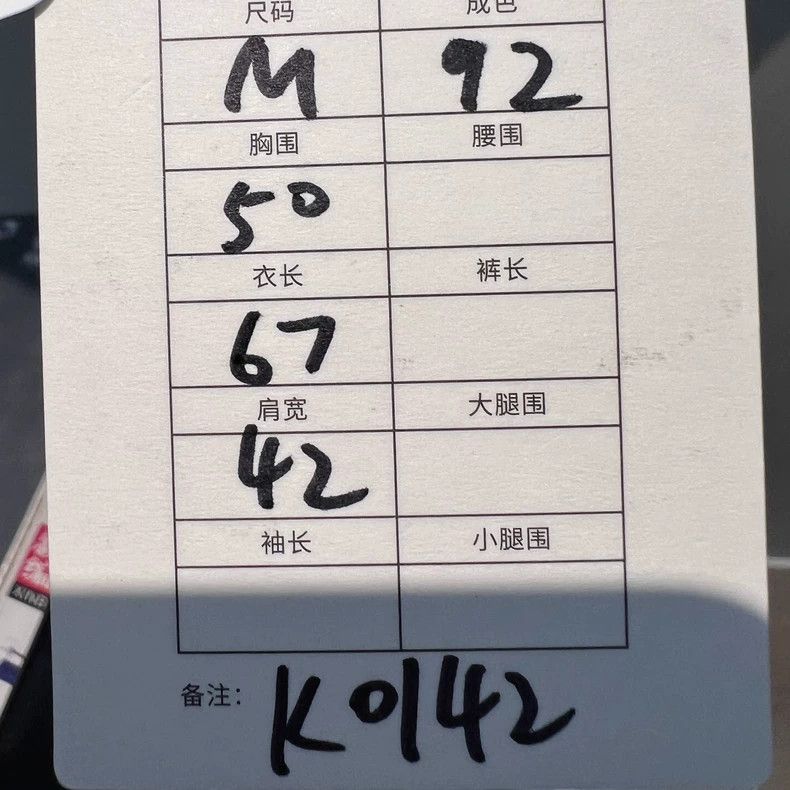 尺码 成色
M 92
胸围 腰围
50
衣长 裤长
67
肩宽 大腿围
42
袖长 小腿围
备注: K0142